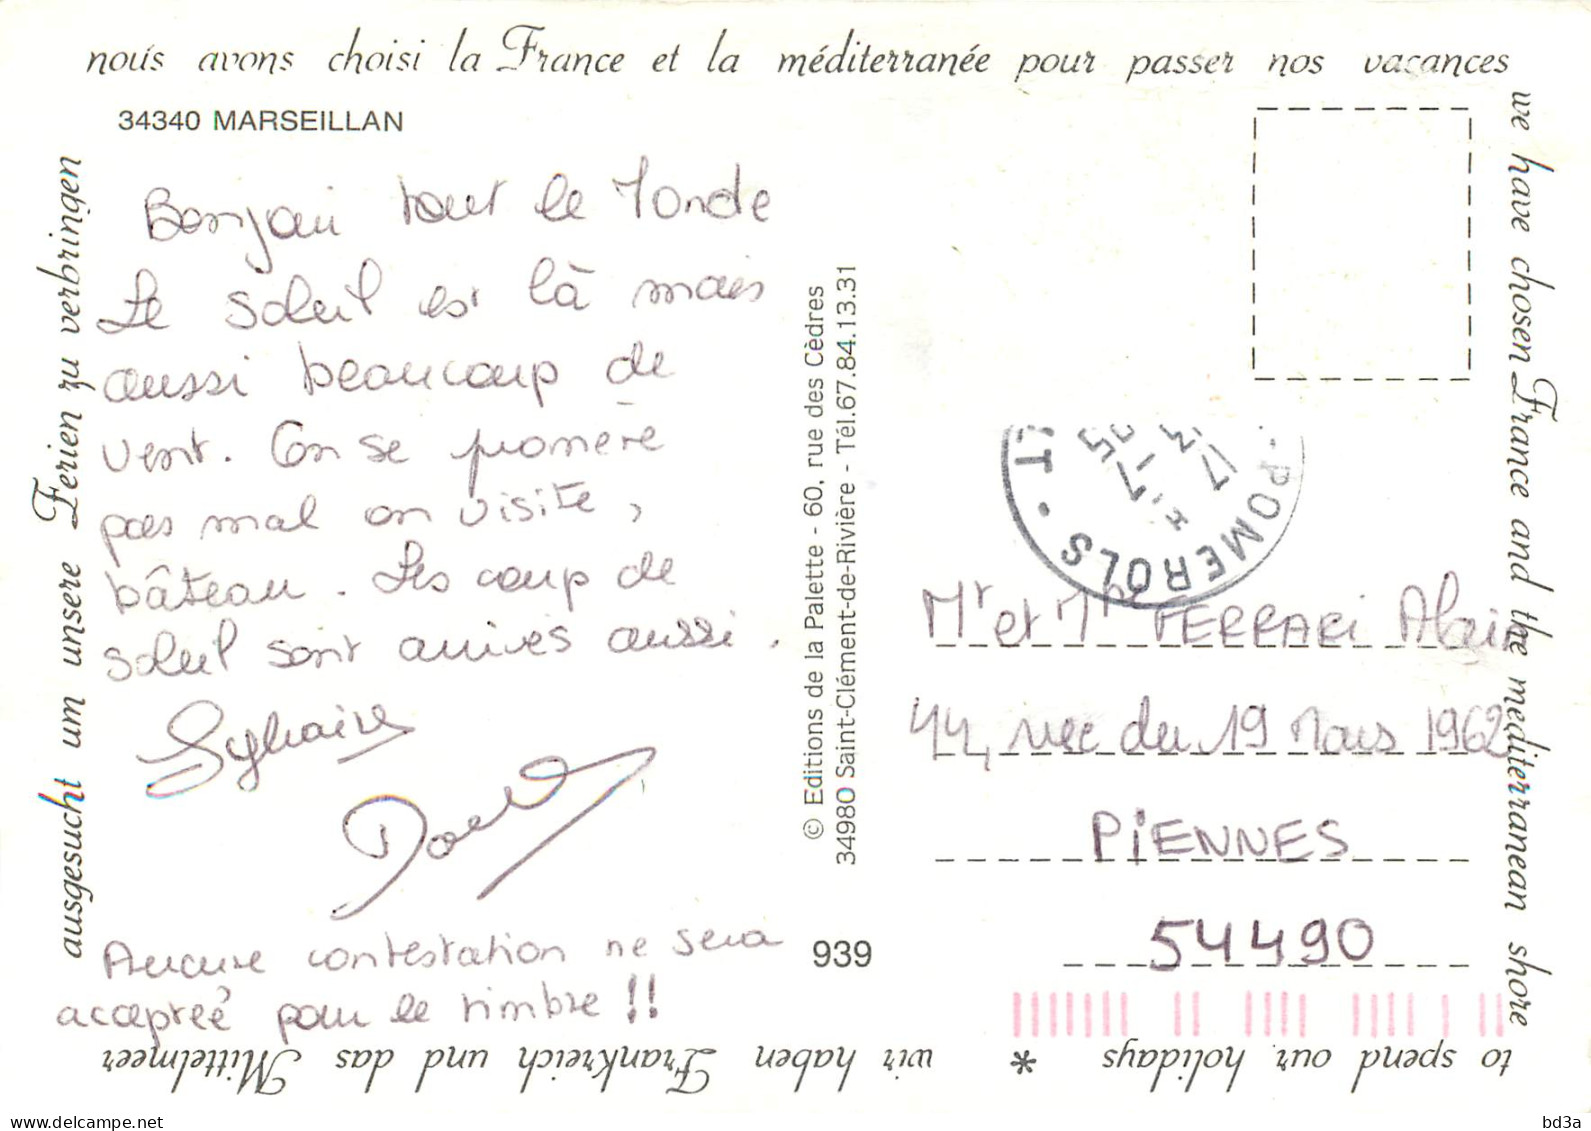 nous avons choisi la France et la méditerranée pour passer nos vacances
34340 MARSEILLAN
Bonjour tout le Monde
Le soleil est là mais
aussi beaucoup de
vent. On se promène
pas mal on visite,
bâteau. Les coup de
soleil sont arrivés aussi.
Sylvaine
Aucune contestation ne sera
acceptée pour le timbre !!
© Editions de la Palette - 60, rue des Cèdres
34980 Saint-Clément-de-Rivière - Tél.67.84.13.31
939
POMEROLS
17
Mr et Mme FERRARi Alain
44, rue du 19 Mars 1962
PiENNES
54490
we have chosen France and the mediterranean shore
to spend our holidays *
wir haben Frankreich und das Mittelmeer
ausgesucht um unsere Ferien zu verbringen
www.delcampe.net
bd3a